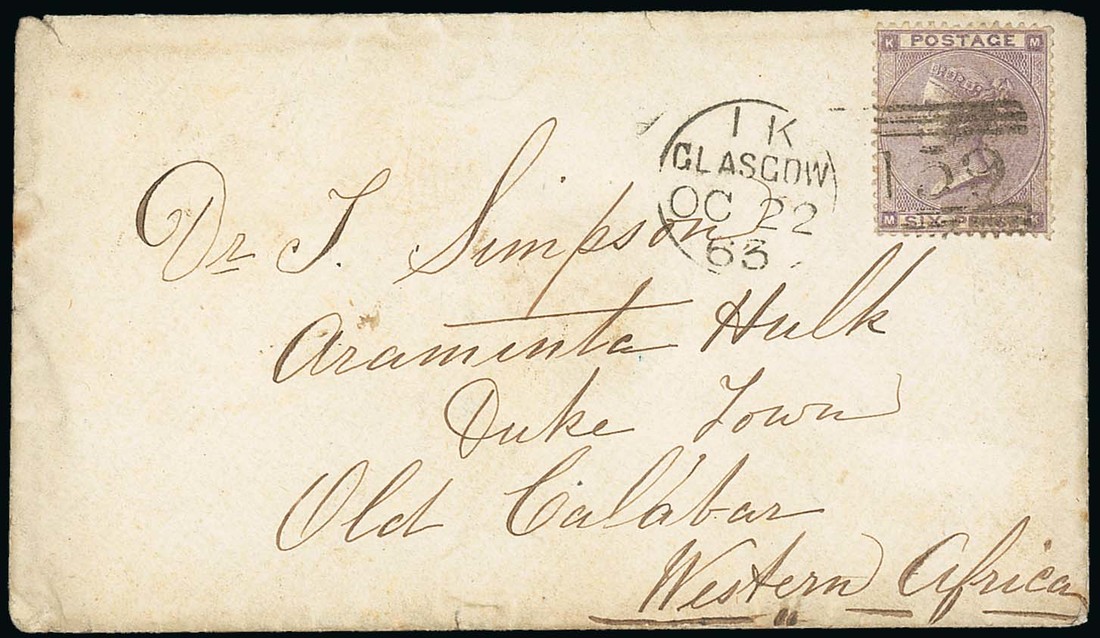 K POSTAGE M
1 K
GLASGOW
OC 22
63
159
M SIX PENCE K
Dr T. Simpson
Araminta Hulk
Duke Town
Old Calabar
Western Africa